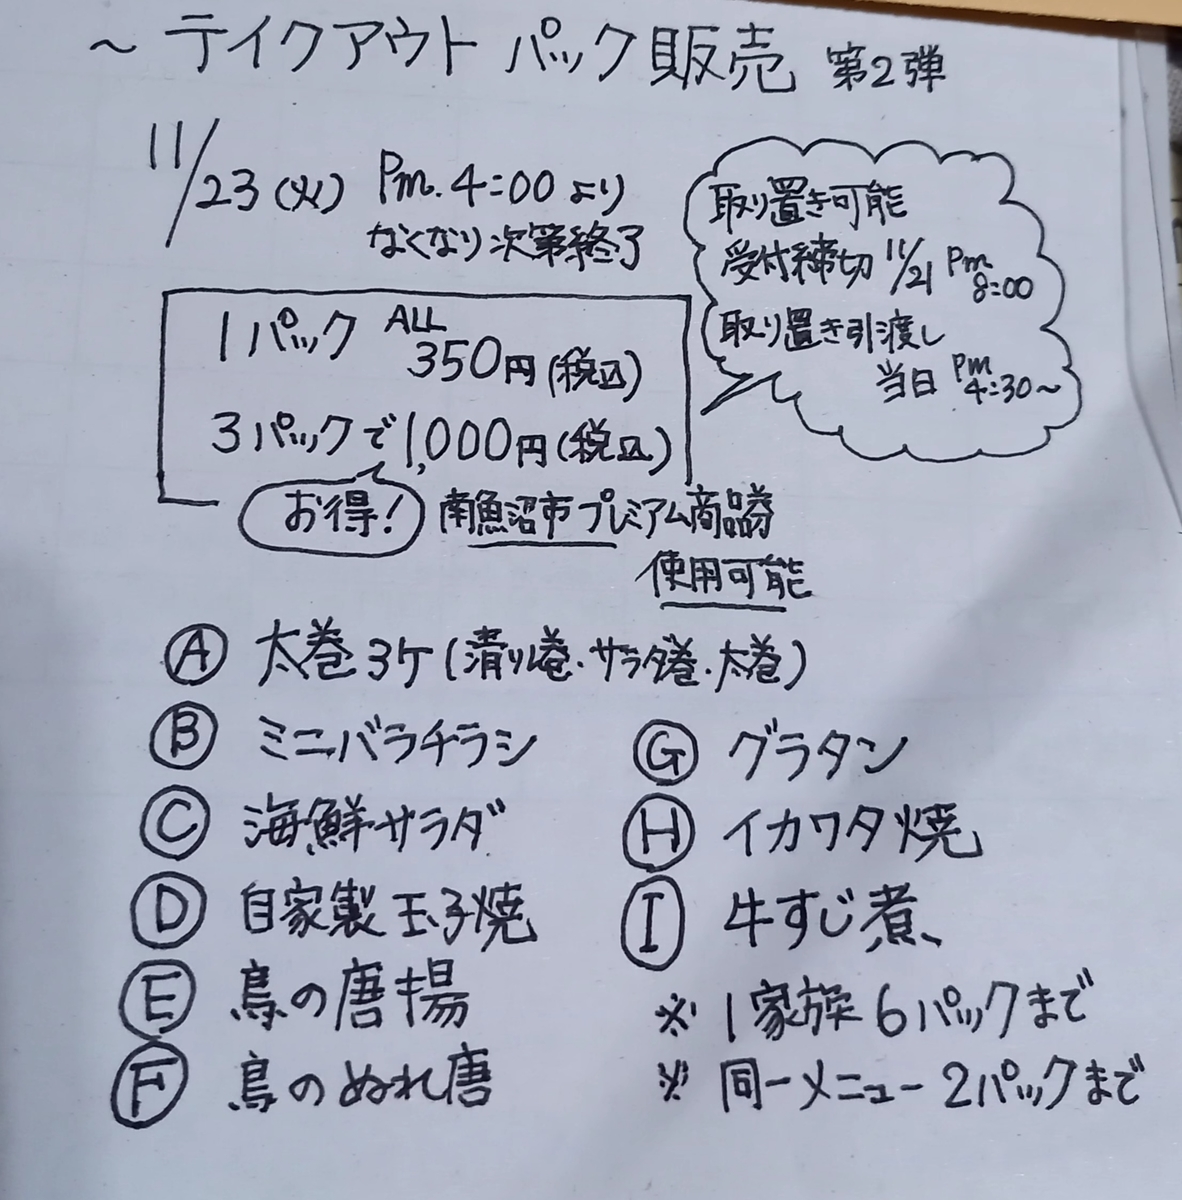 ～ テイクアウト パック 販売 第2弾
11/23(火) Pm. 4:00 より
なくなり次第終了
取り置き可能
受付締切 11/21 Pm 8:00
取り置き引渡し
当日 Pm 4:30～
1パック ALL 350円(税込)
3パックで1,000円(税込)
お得! 南魚沼市プレミアム商品券
使用可能
Ⓐ 太巻3ケ(清り巻・サラダ巻・太巻)
Ⓑ ミニバラチラシ
Ⓒ 海鮮サラダ
Ⓓ 自家製玉子焼
Ⓔ 鳥の唐揚
Ⓕ 鳥のぬれ唐
Ⓖ グラタン
Ⓗ イカワタ焼
Ⓘ 牛すじ煮
※ 1家族6パックまで
※ 同一メニュー2パックまで